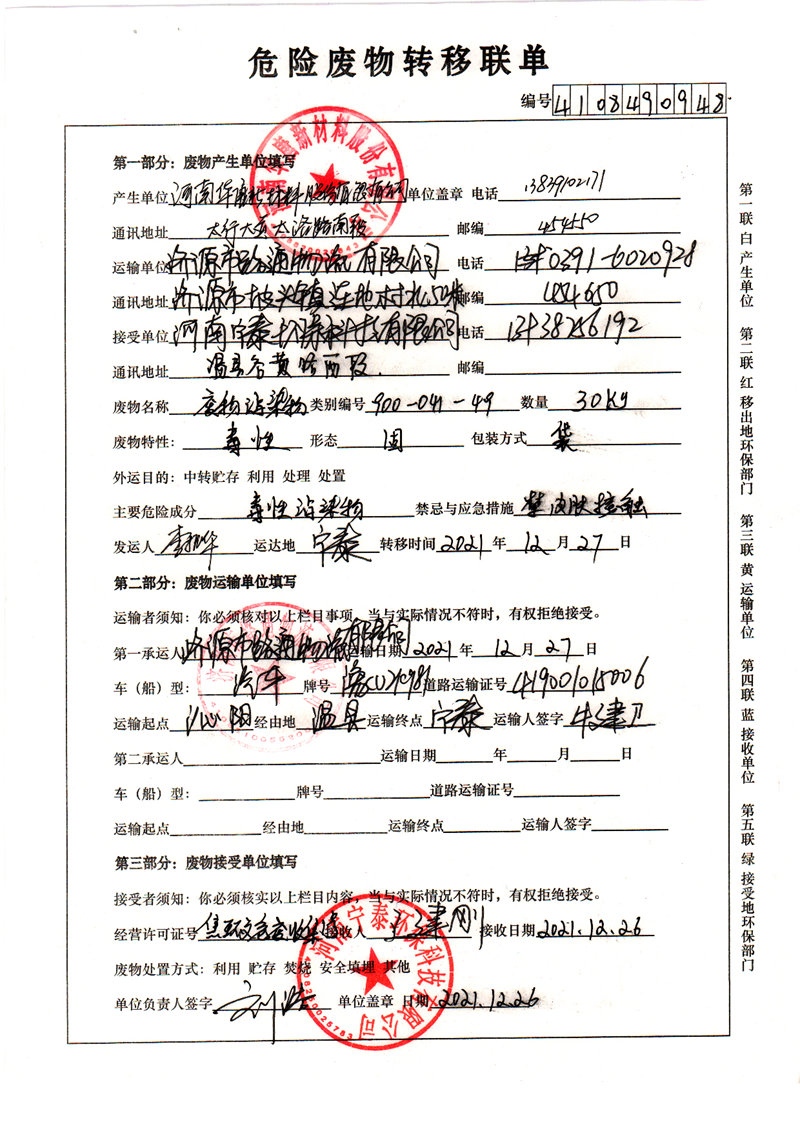 危险废物转移联单
编号 4108490948
第一部分：废物产生单位填写
产生单位 河南华 新材料股份有限公司 单位盖章 电话 13839102171
通讯地址 太行大 南段 邮编 454550
运输单位 济源市路通物流有限公司 电话 0391-6020928
通讯地址 济源市坡头镇连地村 邮编 454650
接受单位 河南宁泰环保科技有限公司 电话 38256192
通讯地址 温县谷黄路西段. 邮编
废物名称 废物沾染物 类别编号 900-041-49 数量 30Kg
废物特性： 毒性 形态 固 包装方式 袋
外运目的：中转贮存 利用 处理 处置
主要危险成分 毒性沾染物 禁忌与应急措施 禁皮肤接触
发运人 李 华 运达地 宁泰 转移时间 2021 年 12 月 27 日
第二部分：废物运输单位填写
运输者须知：你必须核对以上栏目事项，当与实际情况不符时，有权拒绝接受。
第一承运人 济源市路通物流有限公司 运输日期 2021 年 12 月 27 日
车（船）型： 汽车 牌号 道路运输证号 419001015006
运输起点 沁阳 经由地 温县 运输终点 宁泰 运输人签字
第二承运人 运输日期 年 月 日
车（船）型： 牌号 道路运输证号
运输起点 经由地 运输终点 运输人签字
第三部分：废物接受单位填写
接受者须知：你必须核实以上栏目内容，当与实际情况不符时，有权拒绝接受。
经营许可证号 接收人 接收日期 2021.12.26
废物处置方式：利用 贮存 焚烧 安全填埋 其他
单位负责人签字 刘浩 单位盖章 日期 2021.12.26
第一联 白 产生单位
第二联 红 移出地环保部门
第三联 黄 运输单位
第四联 蓝 接收单位
第五联 绿 接受地环保部门
河南宁泰环保科技有限公司